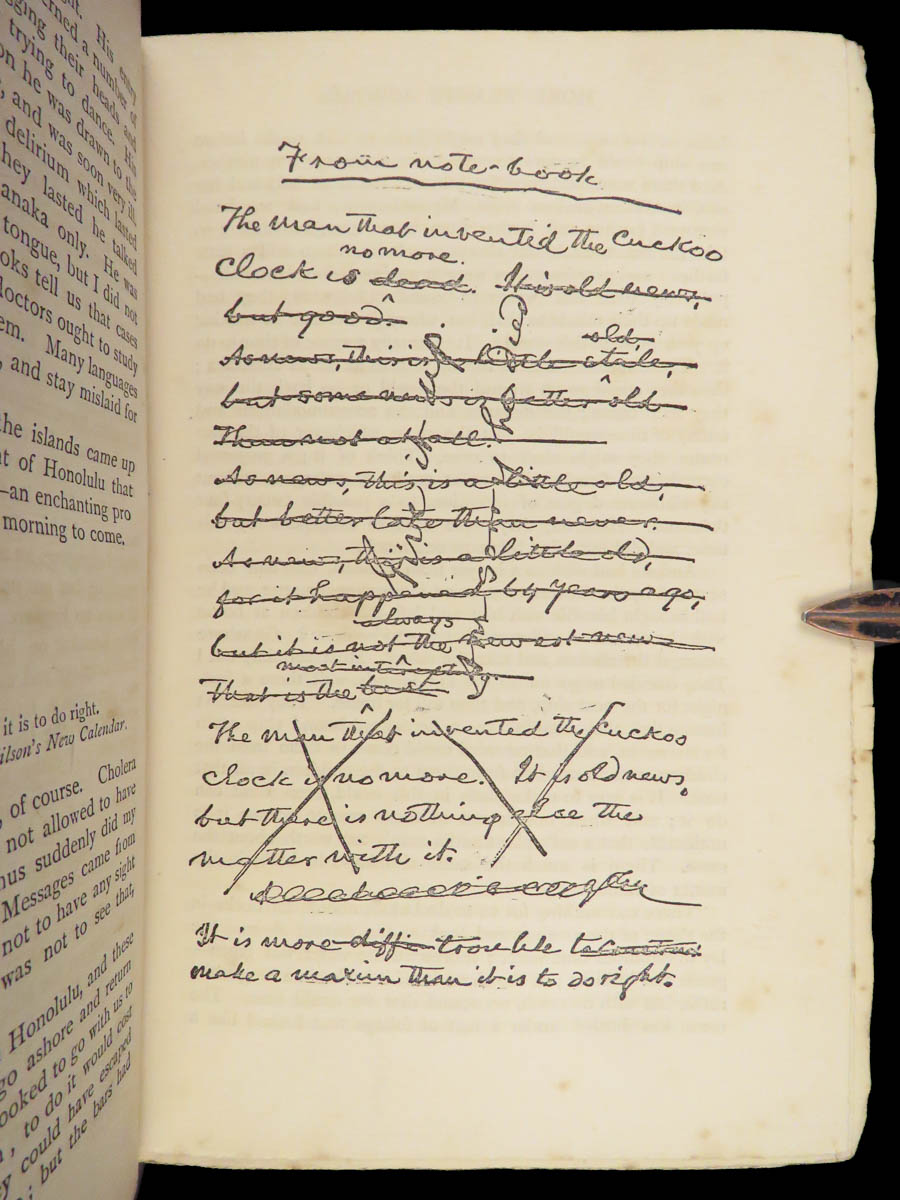 ght. His entry
erned a number of
gging their heads and
trying to dance. His
on he was drawn to the
, and was soon very ill.
delirium which lasted
they lasted he talked
anaka only. He was
tongue, but I did not
oks tell us that cases
doctors ought to study
em. Many languages
, and stay mislaid for
the islands came up
nt of Honolulu that
—an enchanting pro
morning to come.
it is to do right.
ilson's New Calendar.
, of course. Cholera
not allowed to have
hus suddenly did my
Messages came from
not to have any sight
was not to see that,
Honolulu, and these
go ashore and return
ooked to go with us to
, to do it would cost
y could have escaped
; but the bars had
From note-book
The man that invented the cuckoo
no more.
clock is dead. It is old news,
but good.
old,
As news, this is a little stale,
but some news is better old
Than not at all.
As news, this is a little old,
but better late than never.
As news, this is a little old,
for it happened by years ago,
always
but it is not the newest news
most interesting.
That is the best
The man that invented the cuckoo
clock is no more. It is old news,
but there is nothing else the
matter with it.
It is more diffi trouble to
make a maxim than it is to do right.